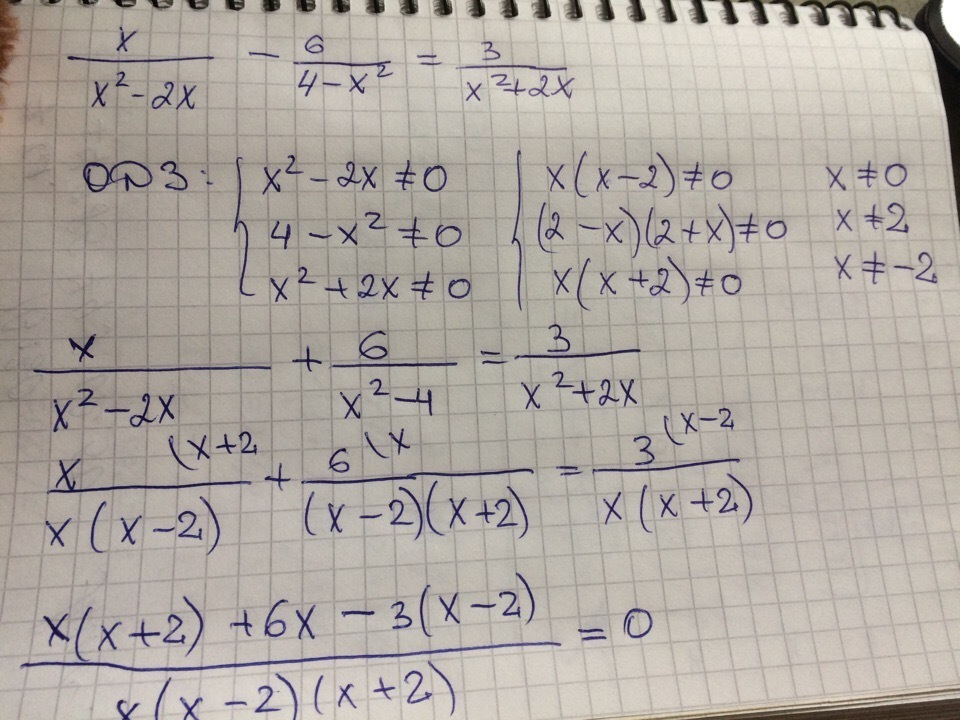 x/(x² - 2x) - 6/(4 - x²) = 3/(x² + 2x)
ОДЗ: { x² - 2x ≠ 0 { x(x - 2) ≠ 0 x ≠ 0
4 - x² ≠ 0 (2 - x)(2 + x) ≠ 0 x ≠ 2
x² + 2x ≠ 0 x(x + 2) ≠ 0 x ≠ -2
x/(x² - 2x) + 6/(x² - 4) = 3/(x² + 2x)
x (x+2 / x(x - 2) + 6 (x / (x - 2)(x + 2) = 3 (x-2 / x(x + 2)
x(x + 2) + 6x - 3(x - 2) / x(x - 2)(x + 2) = 0